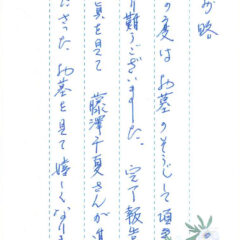 前略
の度は お墓のそうじして頂
り難うございました。完了報告
真を見て 藤澤千夏さんが
ださった お墓を見て嬉しくなりま